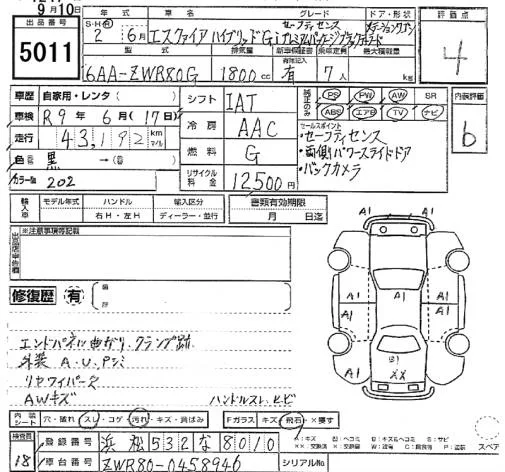 9月10日
出品番号
5011
年式
グレード
ドア・形状
評価点
S・H・R
2 6月
エスクァイア ハイブリッドGi
セーフティセンス
ステーションワゴン
4
型式
排気量
新車保証書
乗車定員
最大積載量
6AA-ZWR80G
1800cc
有
7人
kg
車歴 自家用・レンタ ( )
シフト IAT
PS PW AW SR
ABS エアB TV ナビ
内装評価
b
車検 R9年6月(17日)
走行 43,192 km マイル
冷房 AAC
セールスポイント
・セーフティセンス
・両側パワースライドドア
・バックカメラ
色 黒 →( )
燃料 G
カラーNo. 202
リサイクル料金 12500円
輸入車
モデル年式
ハンドル
輸入区分
書類有効期限
右H・左H
ディーラー・並行
月 日迄
出品店申告欄
※注意事項等記載
修復歴 有
箇所
エンドパネル曲がり、クランプ跡
外装 A.U.Pシミ
リヤワイパーズ
AWキズ
ハンドルスレ、ヒビ
A1
A1 A1
A1
A1
A1
A1
B1
XX
内装 シート 穴・破れ スレ・コゲ 汚れ・キズ・異ばみ
Fガラス キズ 飛石 ×要す
検査員
18
登録番号 浜松532な8010
車台番号 ZWR80-0458946
シリアルNo.
スペア